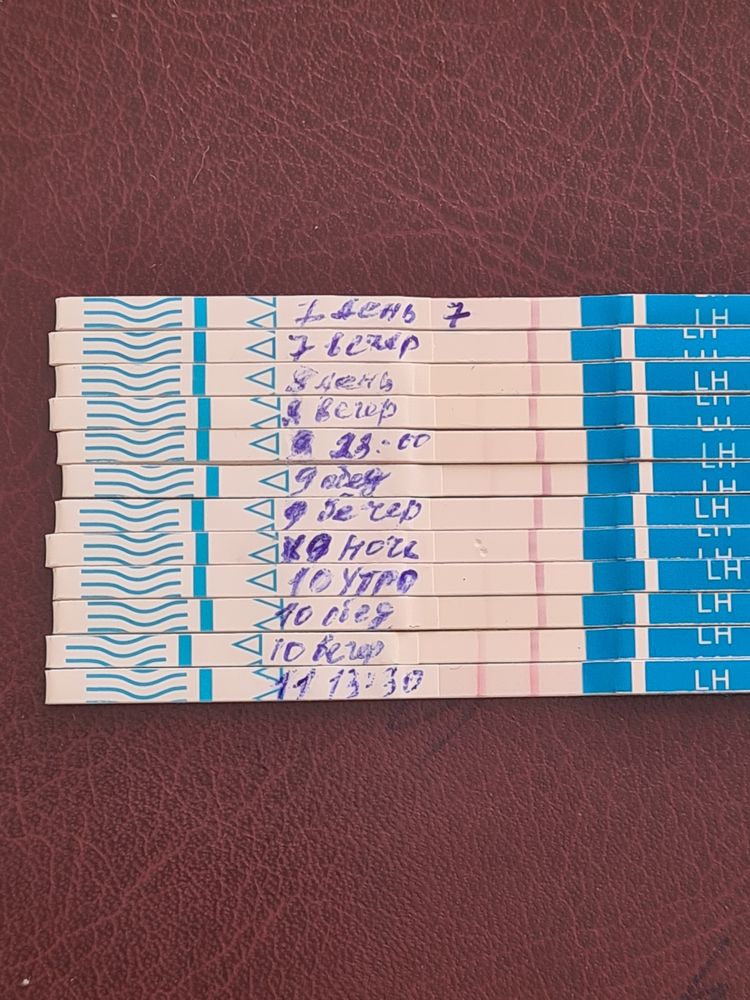 7 день 7 LH
7 вечер LH
8 день LH
8 вечер LH
8 23:00 LH
9 обед LH
9 вечер LH
9 ночь LH
10 утро LH
10 обед LH
10 вечер LH
11 13:30 LH